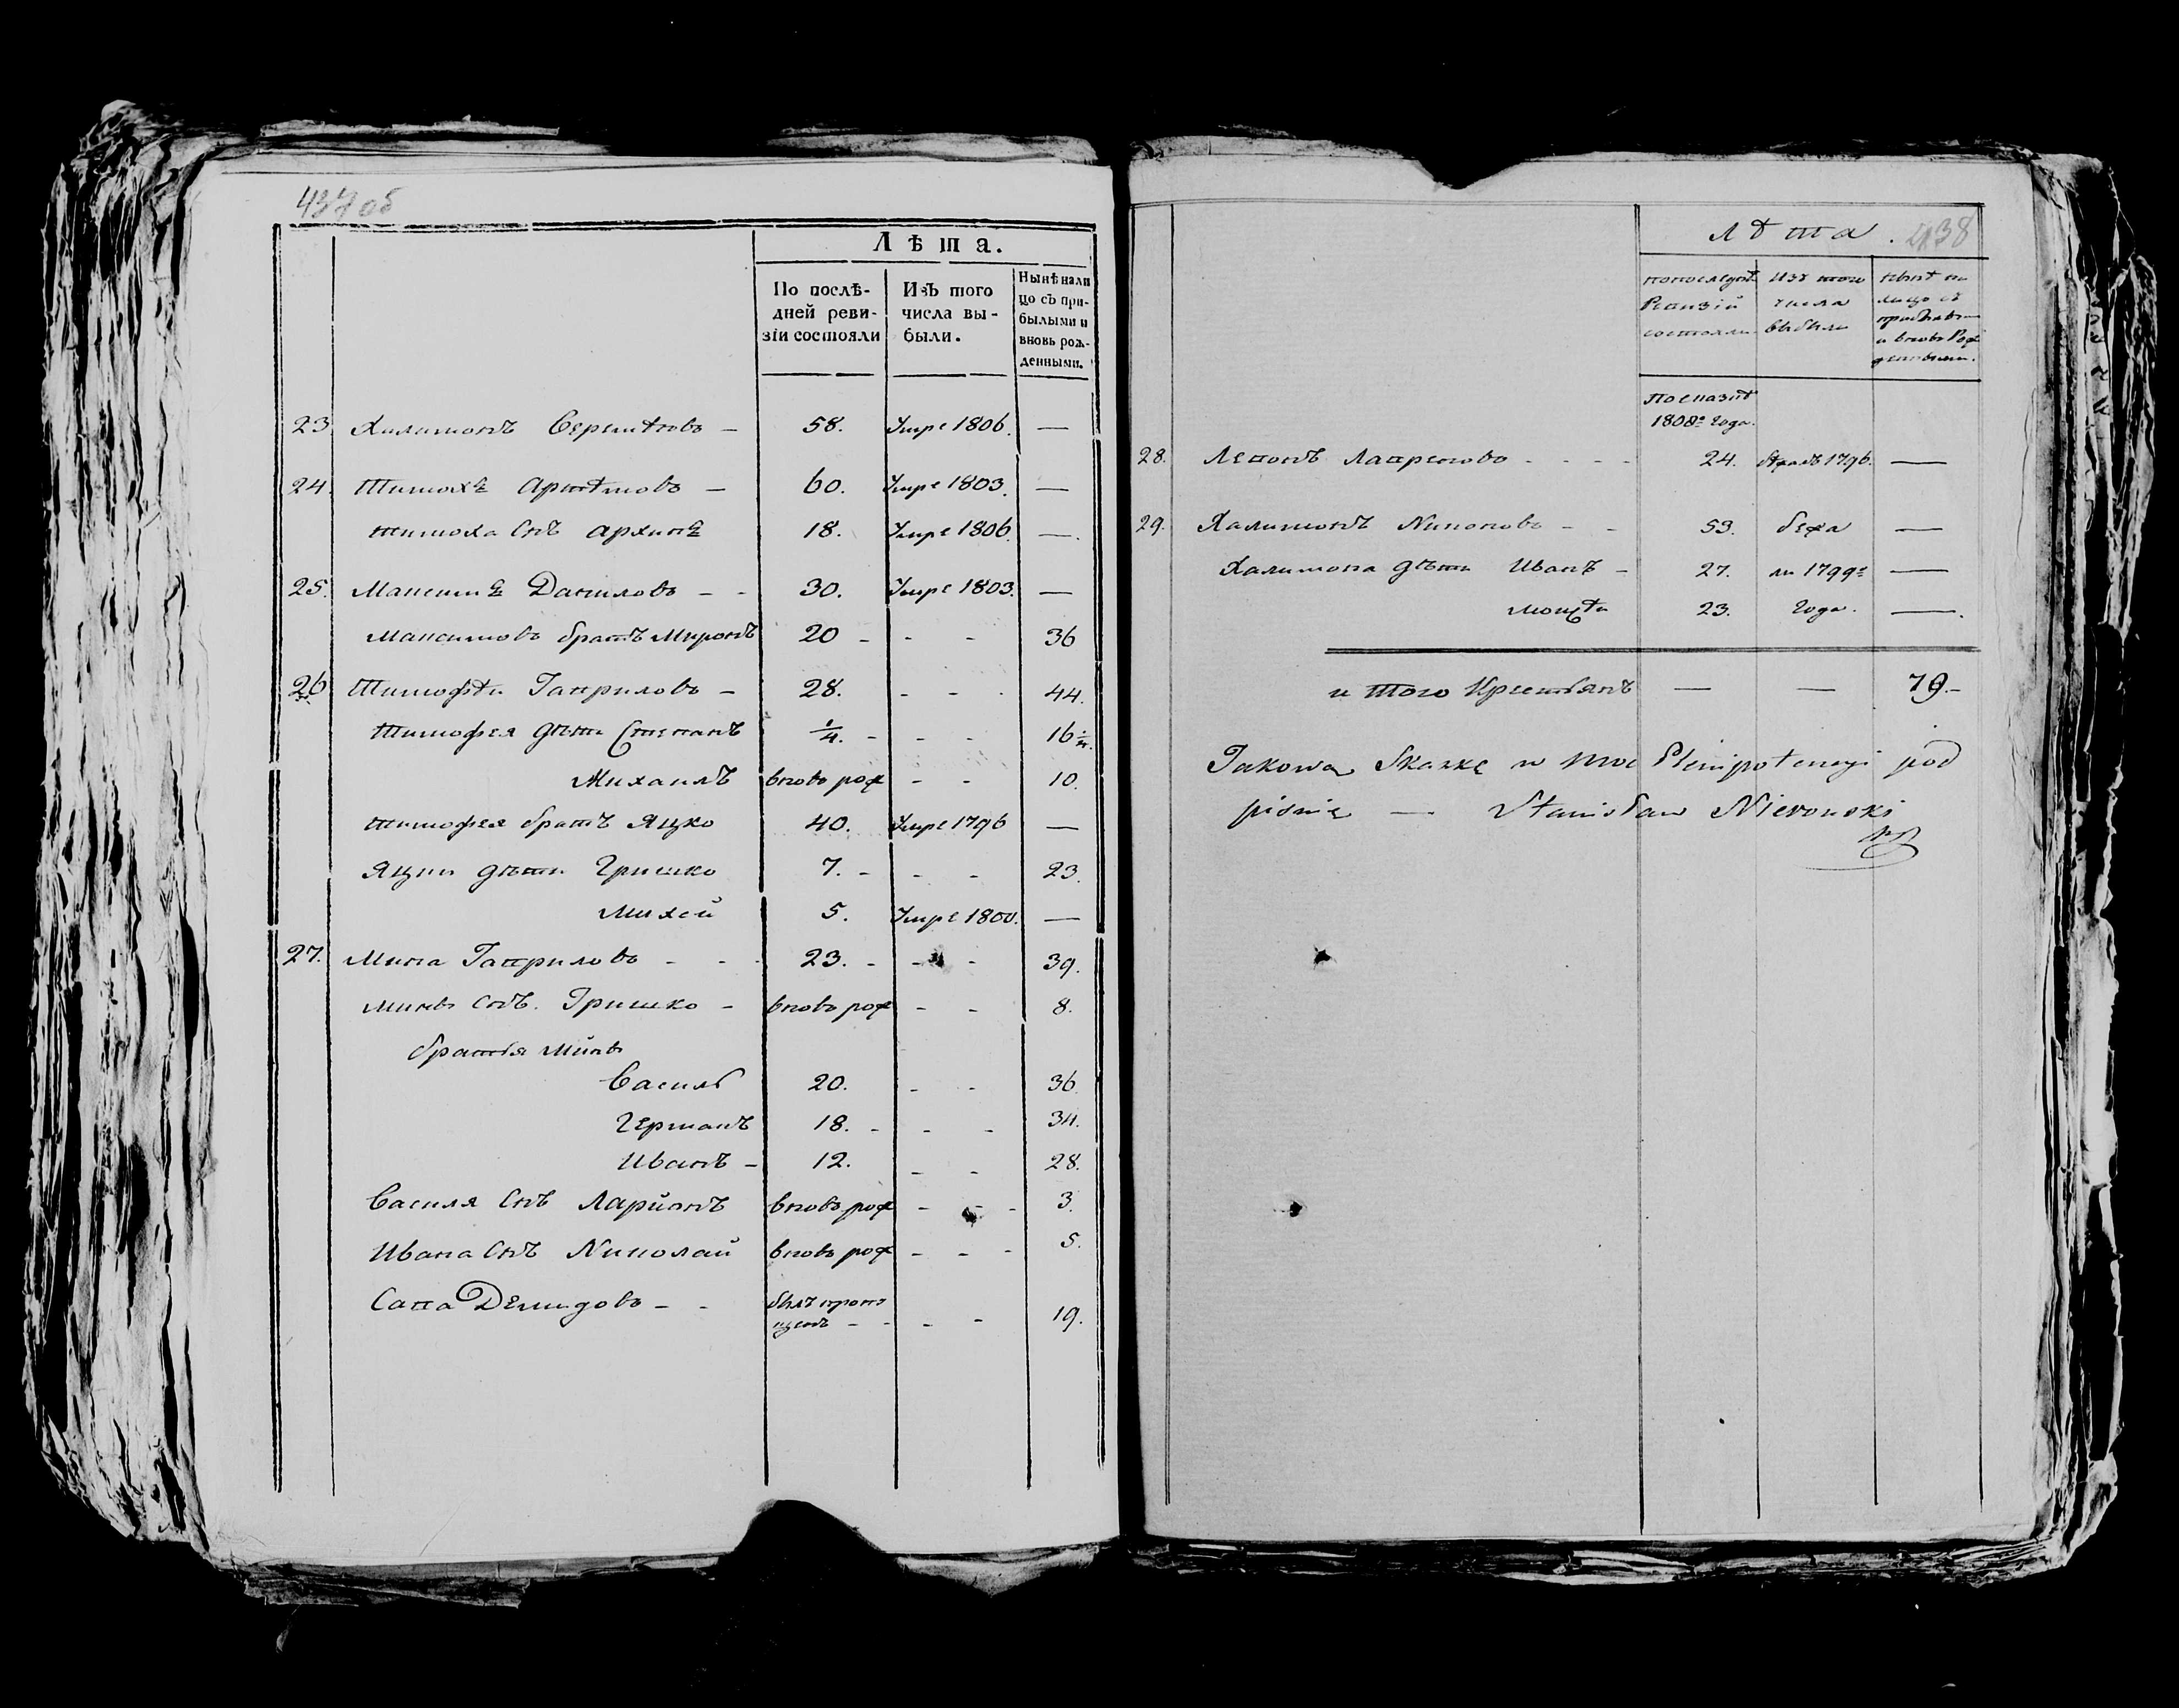 437 об
Лѣта.
По послѣ-
дней реви-
зіи состояли
Изъ того
числа вы-
были.
Нынѣ нали
цо съ при-
былыми и
вновь рож-
денными.
23 Халимонъ Веремѣковъ — 58. Умре 1806. —
24. Тимохъ Артѣмовъ — 60. Умре 1803. —
Тимоха Снъ Архипъ 18. Умре 1806. —
25. Максимъ Даниловъ - - 30. Умре 1803. —
Максимовъ братъ Миронъ 20 - - - 36
26 Тимофѣи Гавриловъ — 28. - - 44.
Тимофея дѣти Степанъ 1/4. - - - 16 1/4.
Михаилъ вновь рож - - 10.
Тимофея братъ Яцко 40. Умре 1796 —
Яцки дѣти Гришко 7. - - - 23.
Михей 5. Умре 1800. —
27. Мина Гавриловъ - - - 23. - - - 39.
Мины Снъ. Гришко - вновь рож - - 8.
братья Мины
Василь 20. - - 36
Германъ 18. - - - 34.
Иванъ - 12. - - 28.
Василя Снъ Ларионъ вновь рож - - - 3.
Ивана Снъ Николай вновь рож - - - 5.
Савва Демидовъ - - былъ пропу
щенъ - - - - 19.
Лѣта. 438
по последнѣ
Ревизій
состояли
Изъ того
числа
выбыли
Нынѣ на
лицо съ
прибылы
и вновь Рож
денными.
По сказкѣ
1808го года.
28. Левонъ Лавреновъ - - - - 24. бѣжалъ 1796. —
29. Халимонъ Никоновъ - - 53. бежа —
Халимона дѣти Иванъ - 27. ли 1799го —
Мойсѣи 23. года. —.
и Того Крестьянъ — — 79.-
Takową Skazkę w moc Plenipotencyi pod
pisuię — Stanisław Nieronski